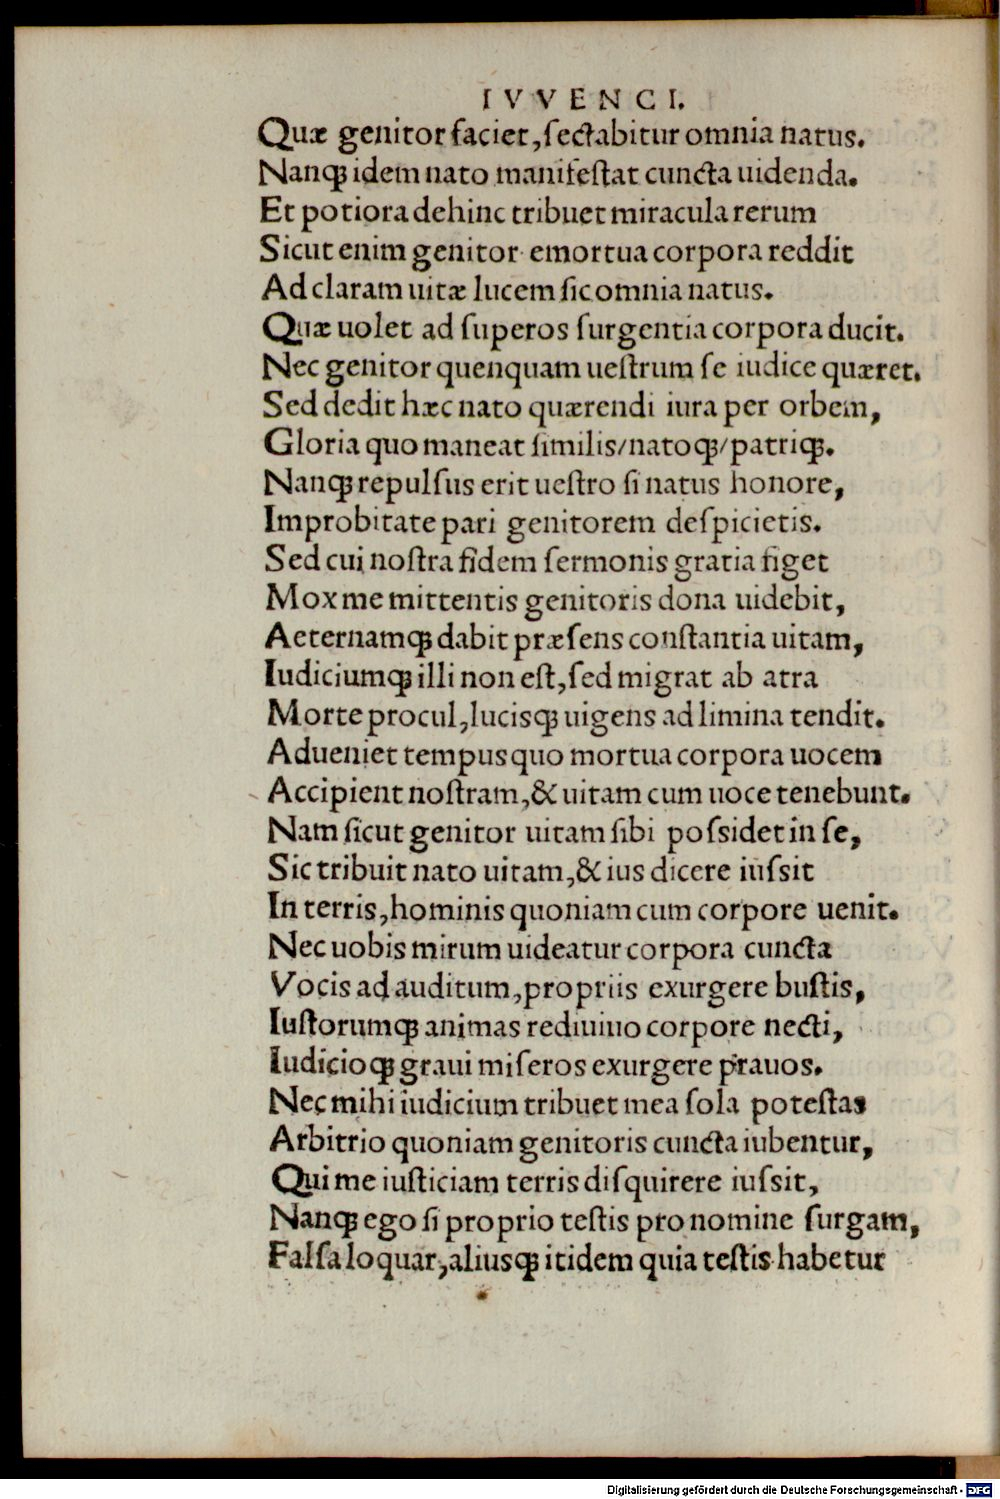 IVVENCI.
Quæ genitor faciet, ſectabitur omnia natus.
Nanꝗ idem nato manifeſtat cuncta uidenda.
Et potiora dehinc tribuet miracula rerum
Sicut enim genitor emortua corpora reddit
Ad claram uitæ lucem ſic omnia natus.
Quæ uolet ad ſuperos ſurgentia corpora ducit.
Nec genitor quenquam ueſtrum ſe iudice quæret.
Sed dedit hæc nato quærendi iura per orbem,
Gloria quo maneat ſimilis/natoꝗ/patriꝗ.
Nanꝗ repulſus erit ueſtro ſi natus honore,
Improbitate pari genitorem deſpicietis.
Sed cui noſtra fidem ſermonis gratia figet
Mox me mittentis genitoris dona uidebit,
Aeternamꝗ dabit præſens conſtantia uitam,
Iudiciumꝗ illi non eſt, ſed migrat ab atra
Morte procul, lucisꝗ uigens ad limina tendit.
Adueniet tempus quo mortua corpora uocem
Accipient noſtram, & uitam cum uoce tenebunt.
Nam ſicut genitor uitam ſibi poſsidet in ſe,
Sic tribuit nato uitam, & ius dicere iuſsit
In terris, hominis quoniam cum corpore uenit.
Nec uobis mirum uideatur corpora cuncta
Vocis ad auditum, propriis exurgere buſtis,
Iuſtorumꝗ animas rediuiuo corpore necti,
Iudicioꝗ graui miſeros exurgere prauos.
Nec mihi iudicium tribuet mea ſola poteſtas
Arbitrio quoniam genitoris cuncta iubentur,
Qui me iuſticiam terris diſquirere iuſsit,
Nanꝗ ego ſi proprio teſtis pro nomine ſurgam,
Falſa loquar, aliusꝗ itidem quia teſtis habetur
Digitalisierung gefördert durch die Deutsche Forschungsgemeinschaft - DFG